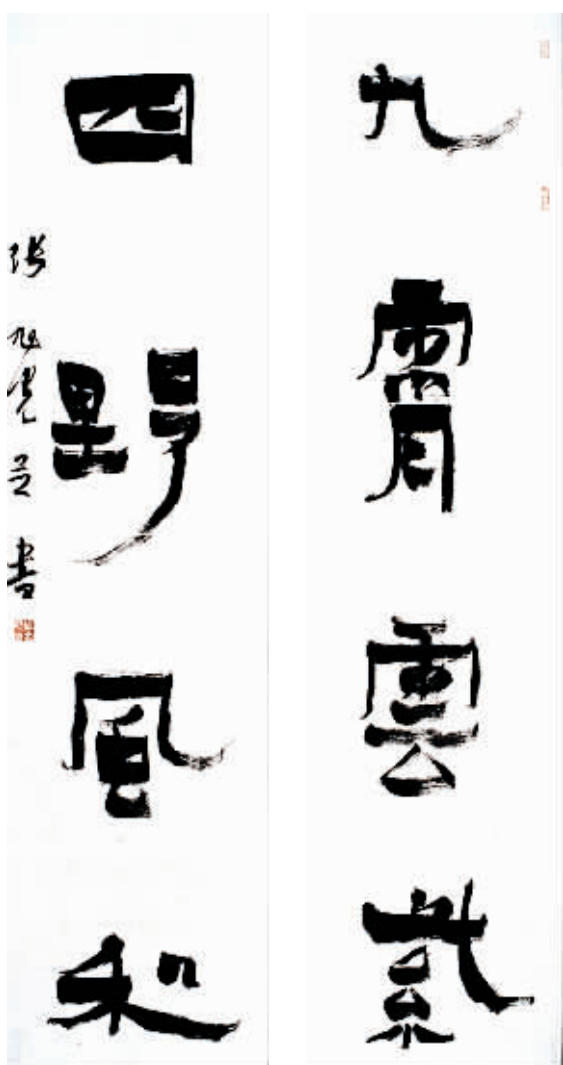 九霄雲紫
四野風和
張旭光書